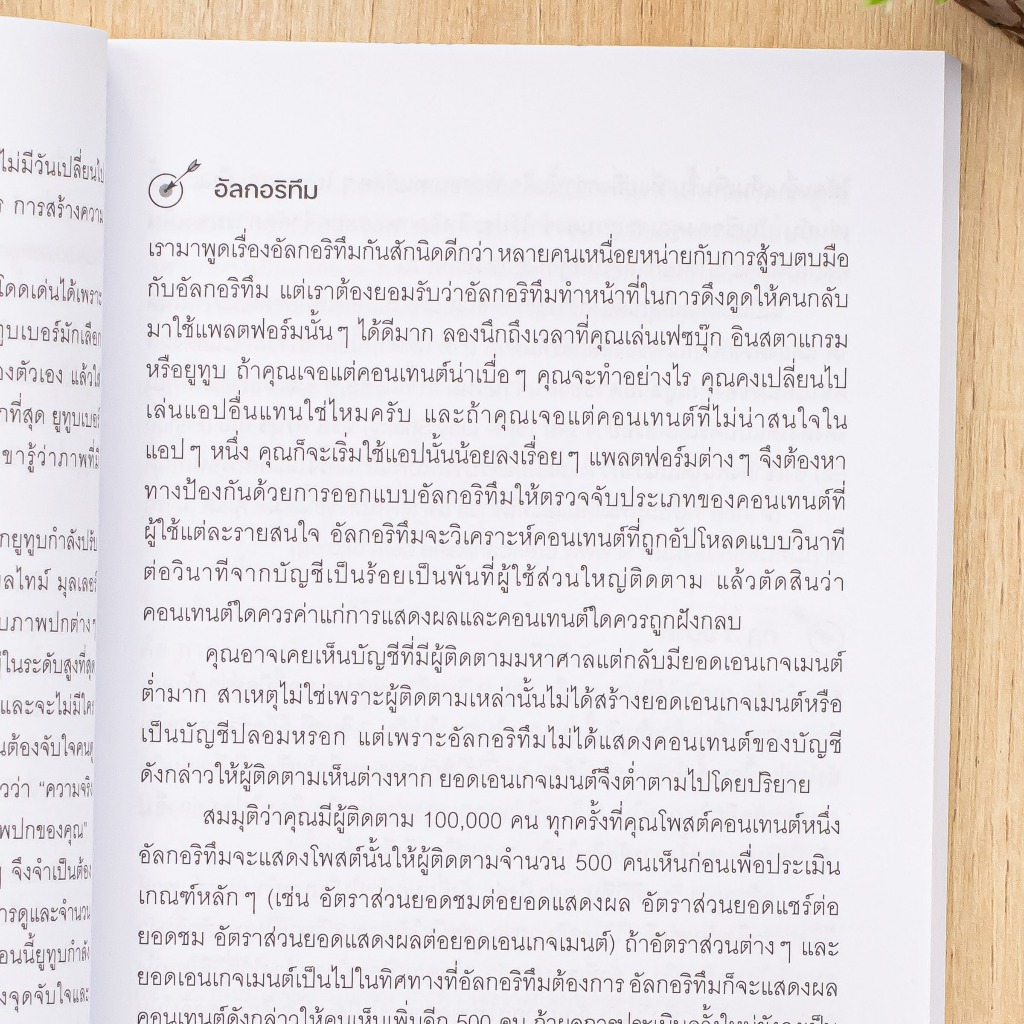 ไม่มีวันเปลี่ยนไป
การสร้างความ
โดดเด่นได้เพราะ
ทูบเบอร์มักเลือก
องตัวเอง แล้วใ
กที่สุด ยูทูบเบอร์
ขารู้ว่าภาพที่มี
กยูทูบกำลังปรับ
ลไทม์ มุลเลอร์
บภาพปกต่างๆ
ในระดับสูงที่สุด
และจะไม่มีใคร
นต้องจับใจคนดู
วว่า “ความจริง
พปกของคุณ”
จึงจำเป็นต้อง
ารดูและจำนวน
อนนี้ยูทูบกำลัง
งจุดจับใจและ
อัลกอริทึม
เรามาพูดเรื่องอัลกอริทึมกันสักนิดดีกว่า หลายคนเหนื่อยหน่ายกับการสู้รบตบมือ
กับอัลกอริทึม แต่เราต้องยอมรับว่าอัลกอริทึมทำหน้าที่ในการดึงดูดให้คนกลับ
มาใช้แพลตฟอร์มนั้นๆ ได้ดีมาก ลองนึกถึงเวลาที่คุณเล่นเฟซบุ๊ก อินสตาแกรม
หรือยูทูบ ถ้าคุณเจอแต่คอนเทนต์น่าเบื่อๆ คุณจะทำอย่างไร คุณคงเปลี่ยนไป
เล่นแอปอื่นแทนใช่ไหมครับ และถ้าคุณเจอแต่คอนเทนต์ที่ไม่น่าสนใจใน
แอปๆ หนึ่ง คุณก็จะเริ่มใช้แอปนั้นน้อยลงเรื่อยๆ แพลตฟอร์มต่างๆ จึงต้องหา
ทางป้องกันด้วยการออกแบบอัลกอริทึมให้ตรวจจับประเภทของคอนเทนต์ที่
ผู้ใช้แต่ละรายสนใจ อัลกอริทึมจะวิเคราะห์คอนเทนต์ที่ถูกอัปโหลดแบบวินาที
ต่อวินาทีจากบัญชีเป็นร้อยเป็นพันที่ผู้ใช้ส่วนใหญ่ติดตาม แล้วตัดสินว่า
คอนเทนต์ใดควรค่าแก่การแสดงผลและคอนเทนต์ใดควรถูกฝังกลบ
คุณอาจเคยเห็นบัญชีที่มีผู้ติดตามมหาศาลแต่กลับมียอดเอนเกจเมนต์
ต่ำมาก สาเหตุไม่ใช่เพราะผู้ติดตามเหล่านั้นไม่ได้สร้างยอดเอนเกจเมนต์หรือ
เป็นบัญชีปลอมหรอก แต่เพราะอัลกอริทึมไม่ได้แสดงคอนเทนต์ของบัญชี
ดังกล่าวให้ผู้ติดตามเห็นต่างหาก ยอดเอนเกจเมนต์จึงต่ำตามไปโดยปริยาย
สมมุติว่าคุณมีผู้ติดตาม 100,000 คน ทุกครั้งที่คุณโพสต์คอนเทนต์หนึ่ง
อัลกอริทึมจะแสดงโพสต์นั้นให้ผู้ติดตามจำนวน 500 คนเห็นก่อนเพื่อประเมิน
เกณฑ์หลักๆ (เช่น อัตราส่วนยอดชมต่อยอดแสดงผล อัตราส่วนยอดแชร์ต่อ
ยอดชม อัตราส่วนยอดแสดงผลต่อยอดเอนเกจเมนต์) ถ้าอัตราส่วนต่างๆ และ
ยอดเอนเกจเมนต์เป็นไปในทิศทางที่อัลกอริทึมต้องการ อัลกอริทึมก็จะแสดงผล
คอนเทนต์ดังกล่าวให้คนเห็นเพิ่มอีก 500 คน